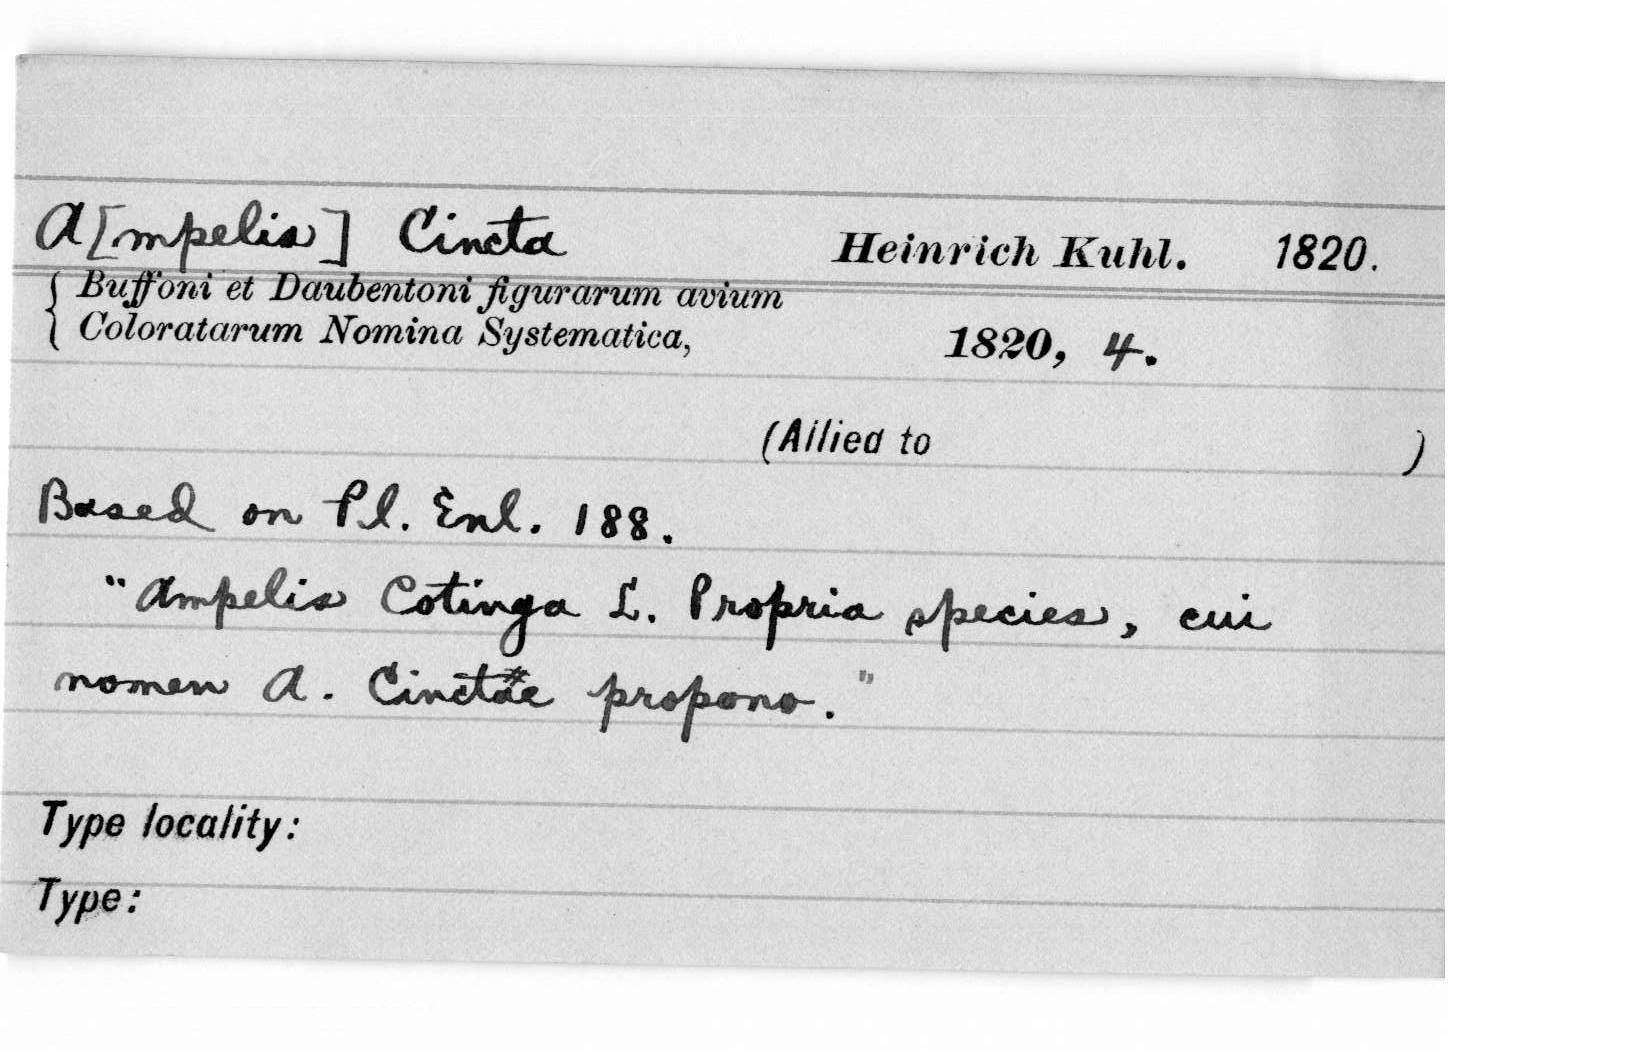 A[mpelis] Cincta Heinrich Kuhl. 1820.
Buffoni et Daubentoni figurarum avium
Coloratarum Nomina Systematica, 1820, 4.
(Allied to )
Based on Pl. Enl. 188.
"Ampelis Cotinga L. Propria species, cui
nomen A. Cinctae propono."
Type locality:
Type: